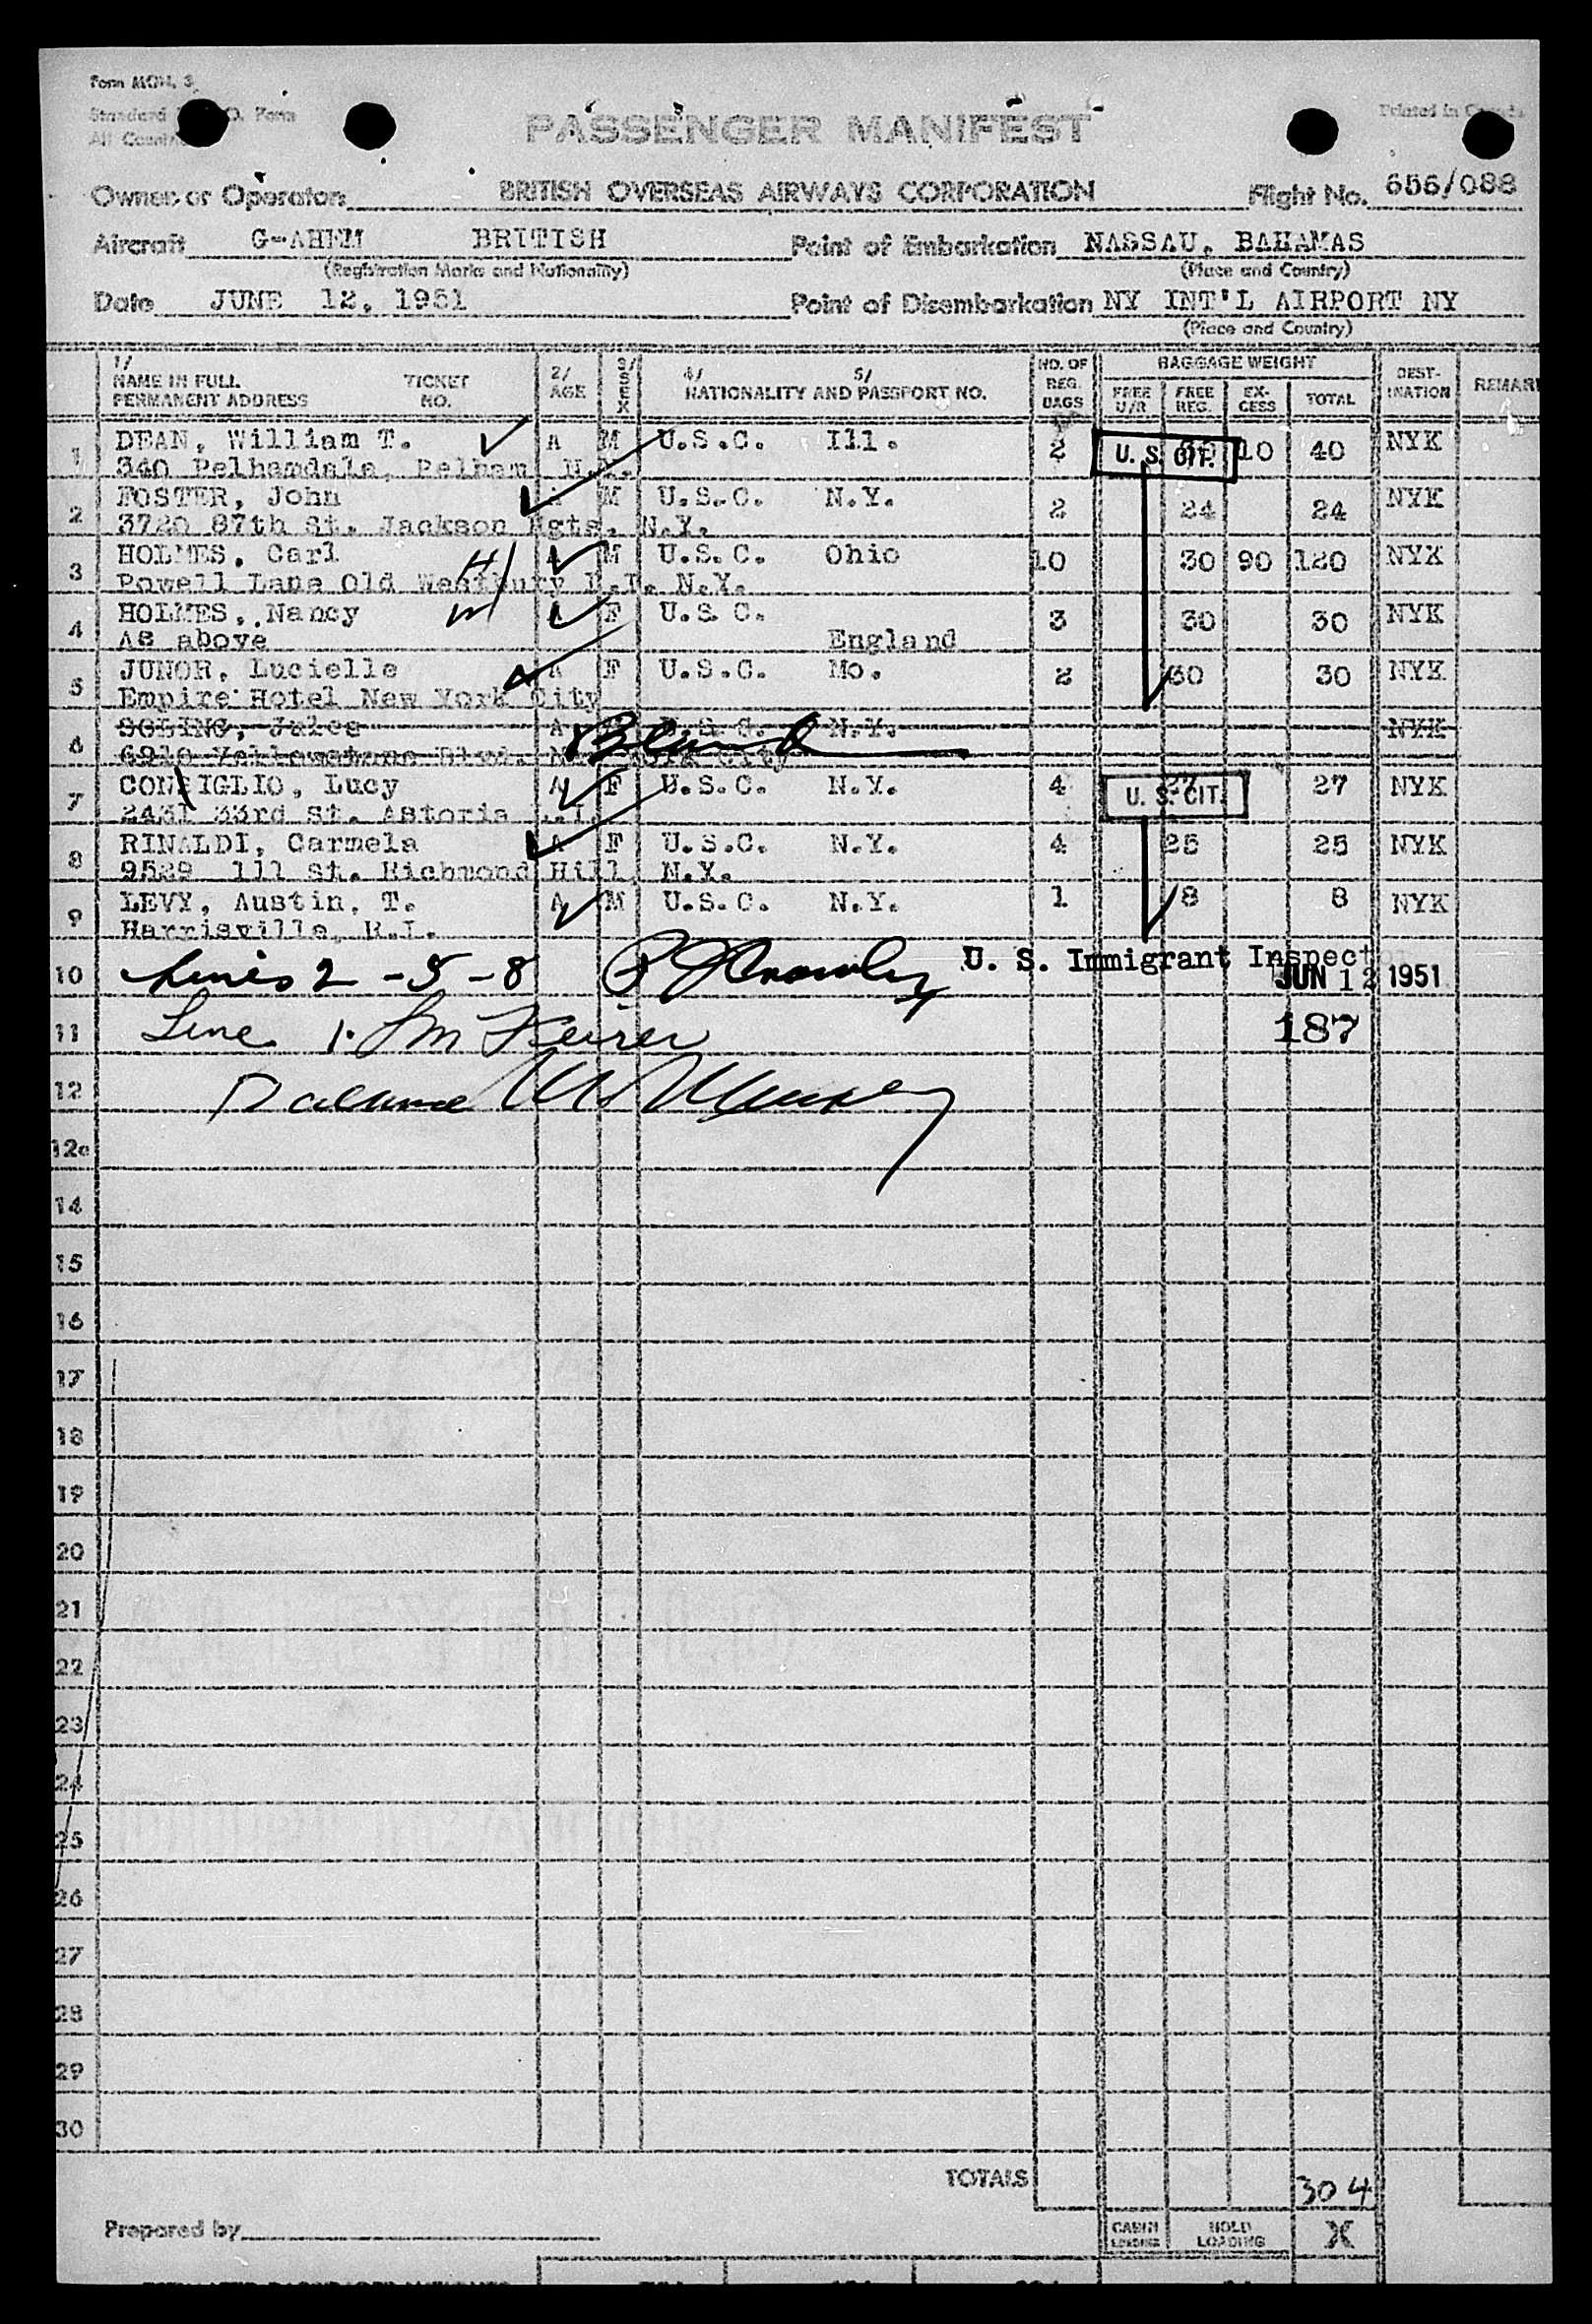 Form MCH. 3
Standard O. Form
All Countr
Printed in Canada
PASSENGER MANIFEST
Owner or Operator BRITISH OVERSEAS AIRWAYS CORPORATION Flight No. 656/088
Aircraft G-AHEM BRITISH Point of Embarkation NASSAU, BAHAMAS
(Registration Marks and Nationality) (Place and Country)
Date JUNE 12, 1951 Point of Disembarkation NY INT'L AIRPORT NY
(Place and Country)
1/ NAME IN FULL PERMANENT ADDRESS TICKET NO. 2/ AGE 3/ SEX 4/ 5/ NATIONALITY AND PASSPORT NO. NO. OF REG. BAGS BAGGAGE WEIGHT FREE U/R FREE REG. EX-CESS TOTAL DEST-INATION REMAR
1 DEAN, William T. A M U.S.C. Ill. 2 U. S. CIT. 10 40 NYK
340 Pelhamdale, Pelham N.Y.
2 FOSTER, John A M U.S.C. N.Y. 2 24 24 NYK
3720 87th St. Jackson Hgts. N.Y.
3 HOLMES, Carl A M U.S.C. Ohio 10 30 90 120 NYK
Powell Lane Old Westbury L.I. N.Y.
4 HOLMES, Nancy A F U.S.C. 3 30 30 NYK
As above England
5 JUNOR, Lucielle A F U.S.C. Mo. 2 30 30 NYK
Empire Hotel New York City
6 Jules A U.S.C. N.Y. NYK
Yellowstone Blvd. New York City
7 CONSIGLIO, Lucy A F U.S.C. N.Y. 4 U. S. CIT. 27 27 NYK
2431 33rd St. Astoria L.I.
8 RINALDI, Carmela A F U.S.C. N.Y. 4 25 25 NYK
9529 111 St. Richmond Hill N.Y.
9 LEVY, Austin, T. A M U.S.C. N.Y. 1 8 8 NYK
Harrisville, R.I.
10 Lines 2 - 5 - 8 U. S. Immigrant Inspector JUN 12 1951
11 Line 1. 187
12 Balance
12c
14
15
16
17
18
19
20
21
22
23
24
25
26
27
28
29
30
TOTALS 304
Prepared by CABIN LOADING HOLD LOADING X